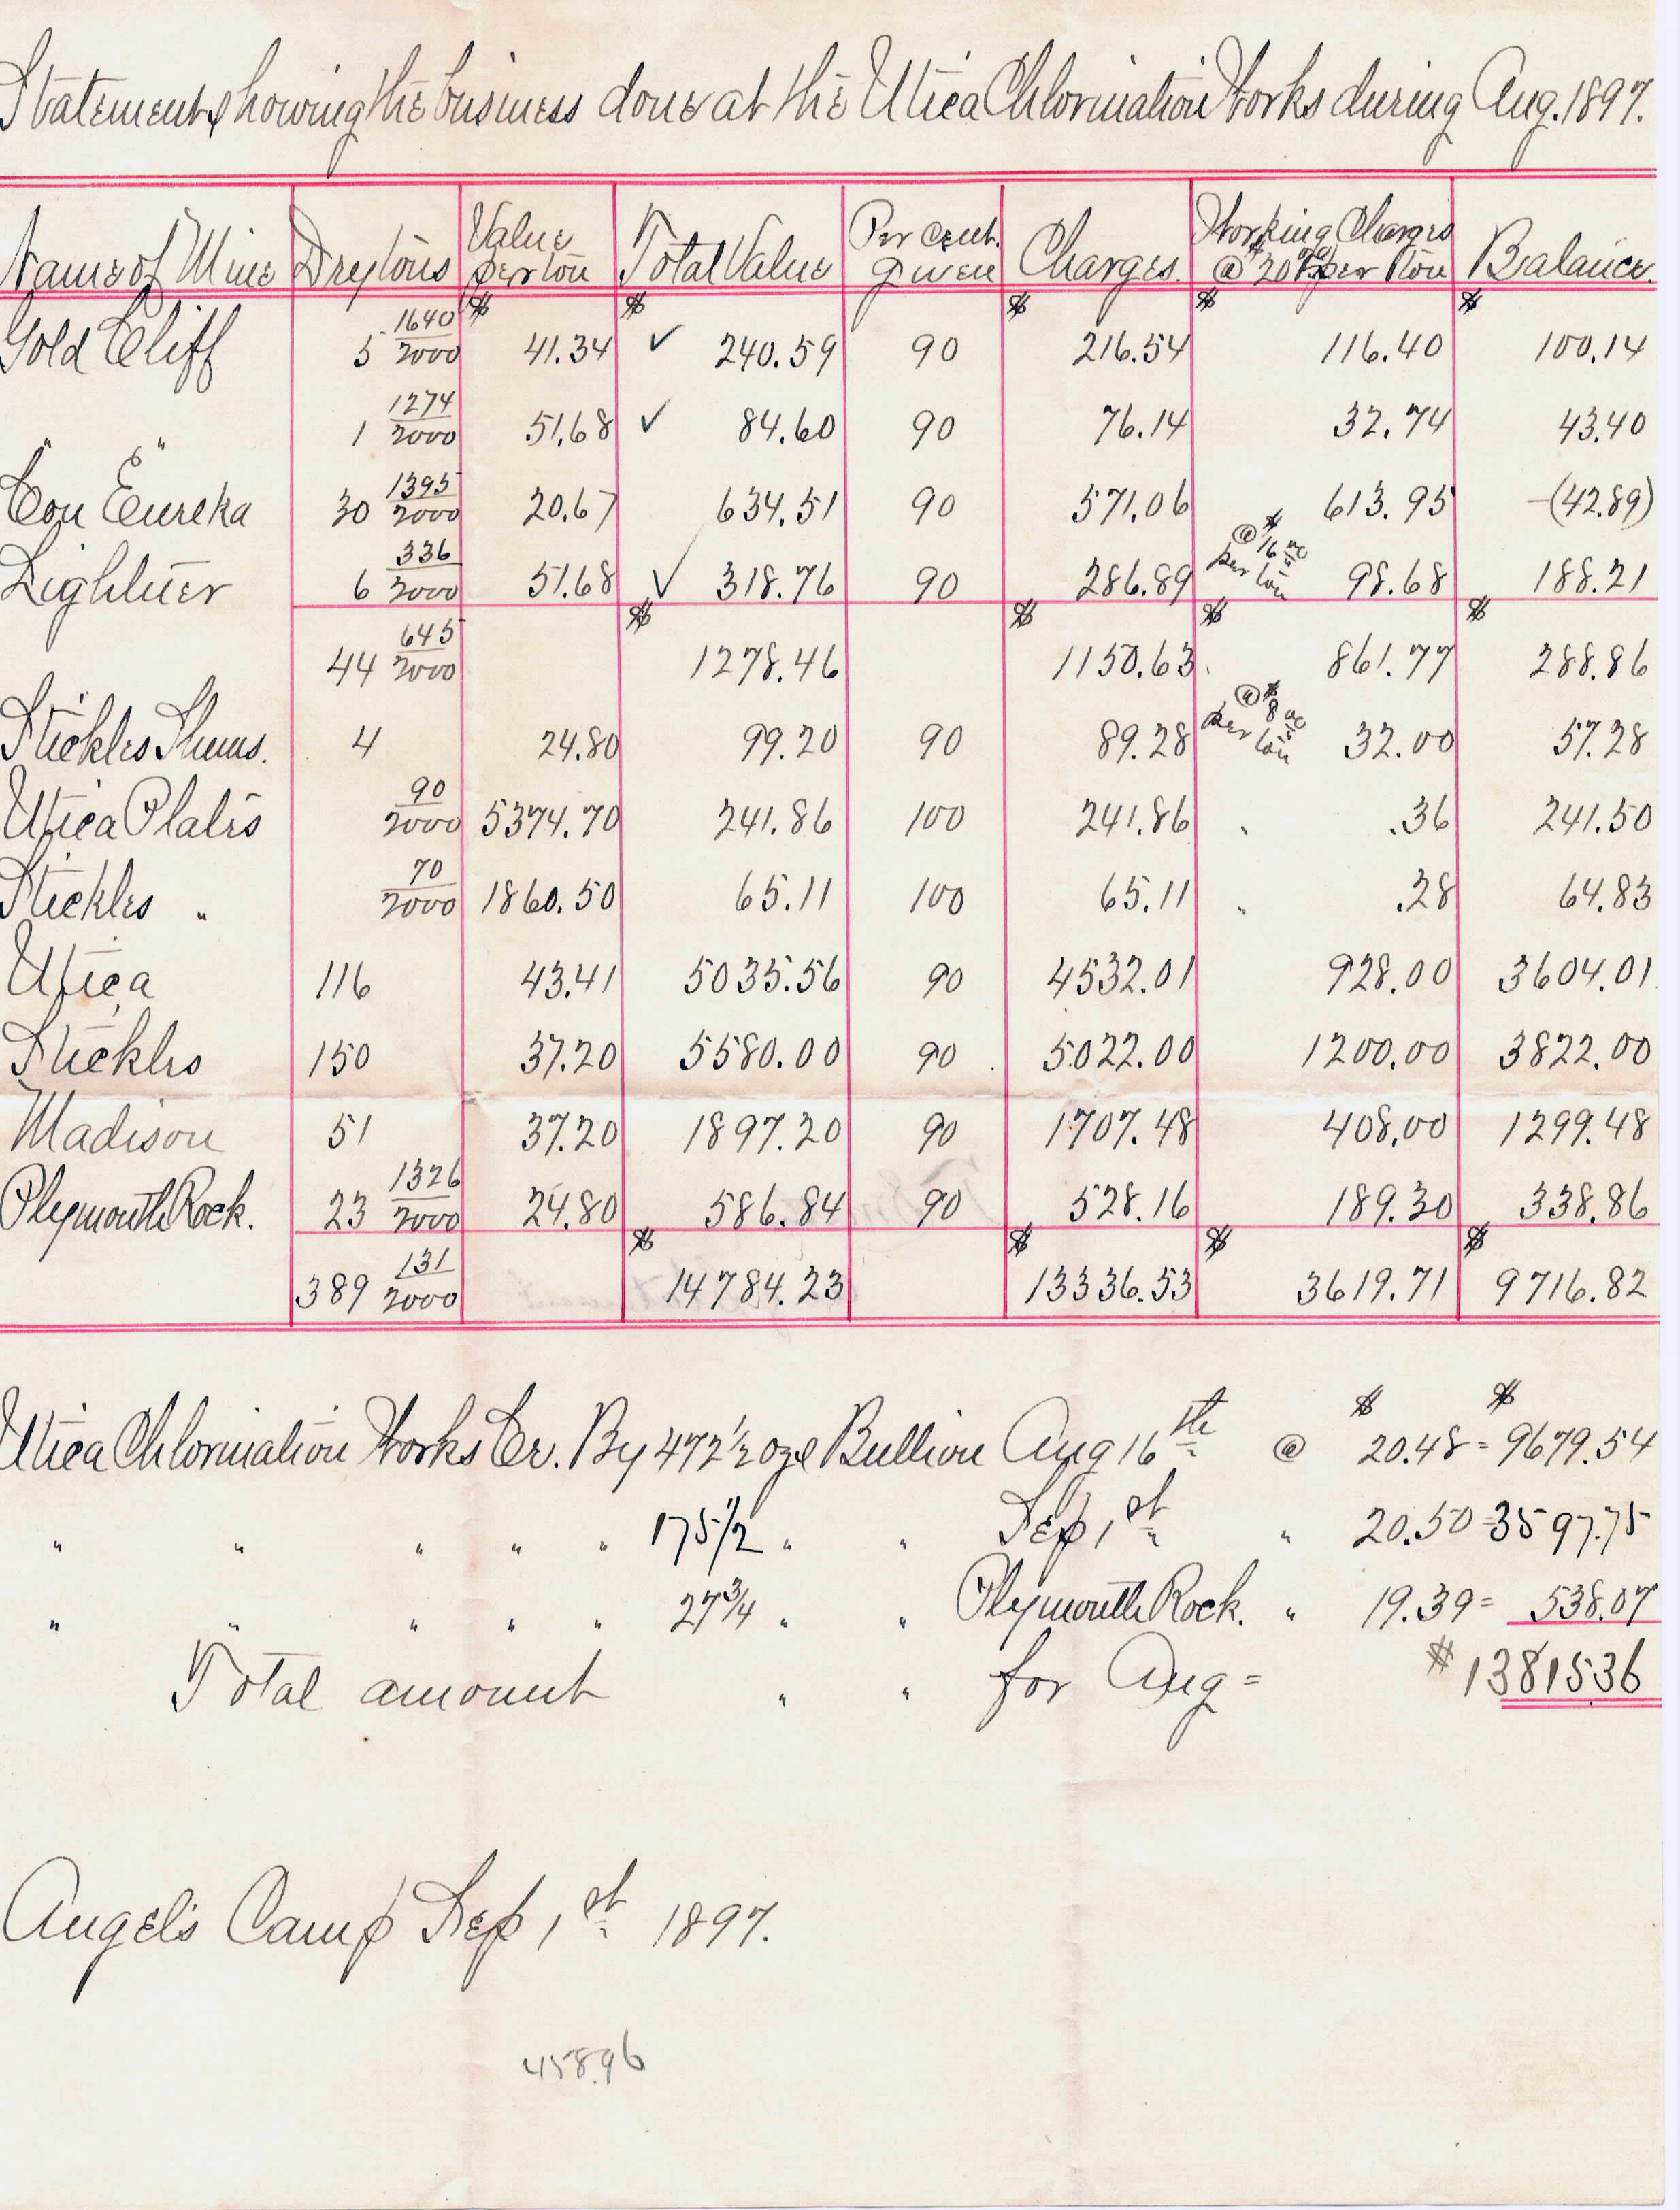 Statement showing the business done at the Utica Chlorination Works during Aug. 1897.
Name of Mine Dry tons Value per ton Total Value Per cent. given Charges. Working Charges @ $20.00 per ton Balance.
$ $ $ $ $
Gold Cliff 5 1640/2000 41.34 ✓ 240.59 90 216.54 116.40 100.14
" " 1 1274/2000 51.68 ✓ 84.60 90 76.14 32.74 43.40
Con Eureka 30 1395/2000 20.67 634.51 90 571.06 613.95 -(42.89)
Lightner 6 336/2000 51.68 ✓ 318.76 90 286.89 @ $16.00 per ton 98.68 188.21
$ $ $ $
44 645/2000 1278.46 1150.63 861.77 288.86
Stickles Slums. 4 24.80 99.20 90 89.28 @ $8.00 per ton 32.00 57.28
Utica Plates 90/2000 5374.70 241.86 100 241.86 " .36 241.50
Stickles " 70/2000 1860.50 65.11 100 65.11 " .28 64.83
Utica 116 43.41 5035.56 90 4532.01 928.00 3604.01
Stickles 150 37.20 5580.00 90 5022.00 1200.00 3822.00
Madison 51 37.20 1897.20 90 1707.48 408.00 1299.48
Plymouth Rock. 23 1326/2000 24.80 586.84 90 528.16 189.30 338.86
$ $ $ $
389 131/2000 14784.23 13336.53 3619.71 9716.82
$ $
Utica Chlorination Works Cr. By 472 1/2 ozs Bullion Aug 16th @ 20.48 = 9679.54
" " " " " 175 1/2 " " Sep 1st " 20.50 = 3597.75
" " " " " 27 3/4 " " Plymouth Rock. " 19.39 = 538.07
Total amount " " for Aug = $13815.36
Angels Camp Sep 1st 1897.
458.96